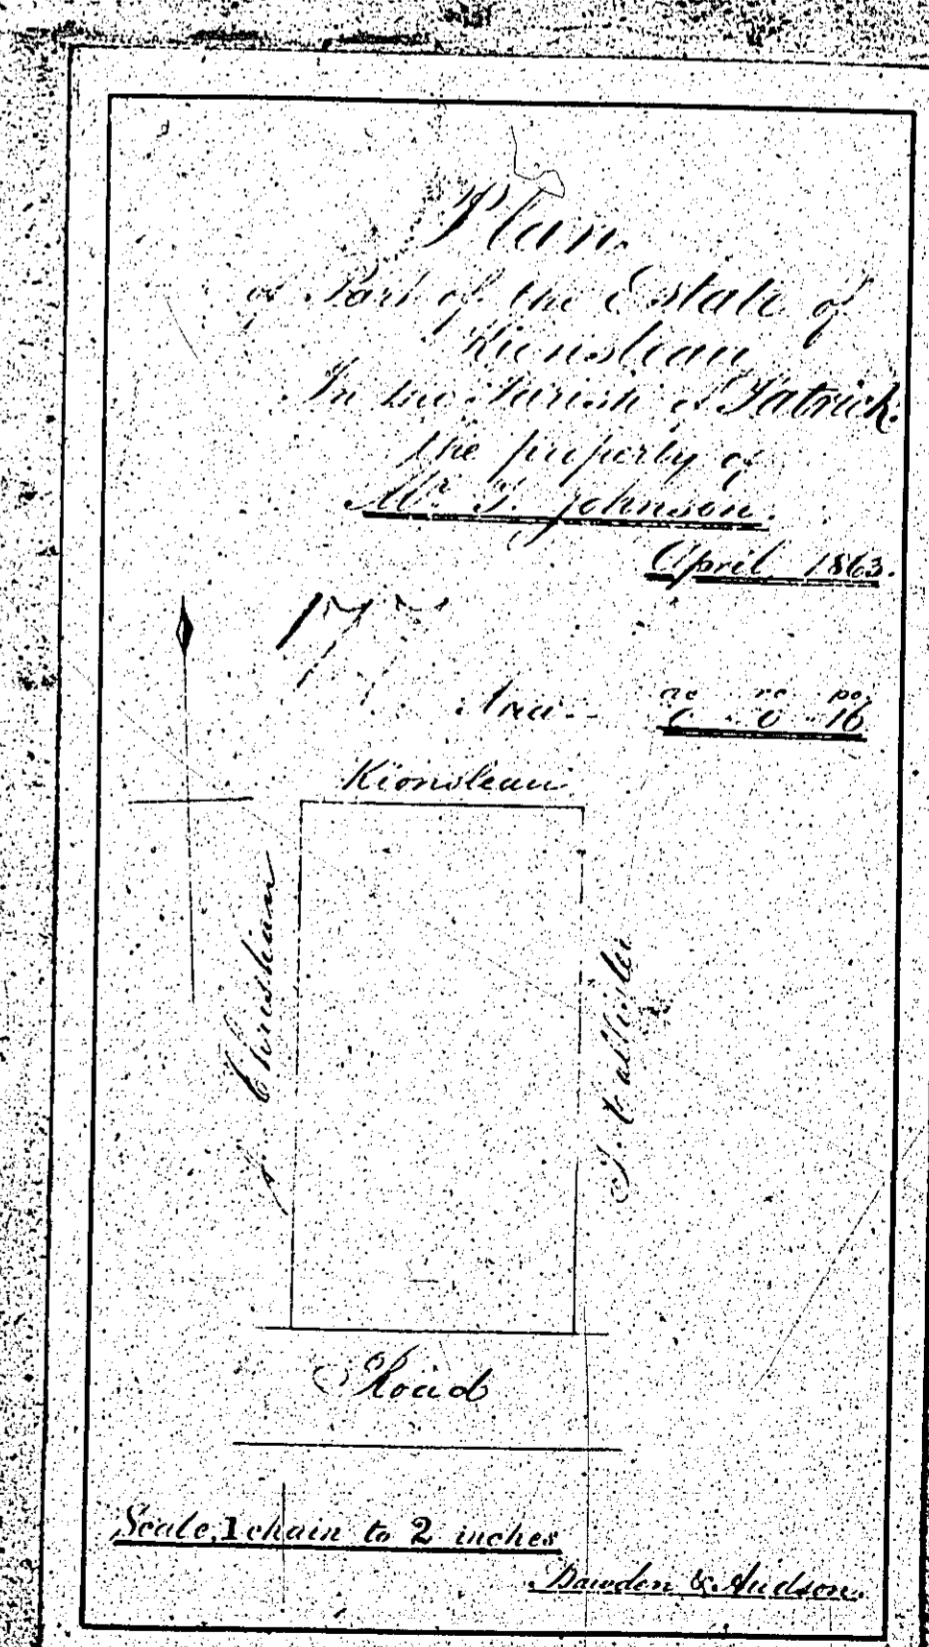 Plan
of Part of the Estate of
Kionslieau
In the Parish of Patrick.
the property of
Mr. T. Johnson.
April 1863.
Area - ac ro po.
0 .. 0 .. 16
Kionslieau
Christian
Road
Scale, 1 chain to 2 inches
Dawden & Hudson.